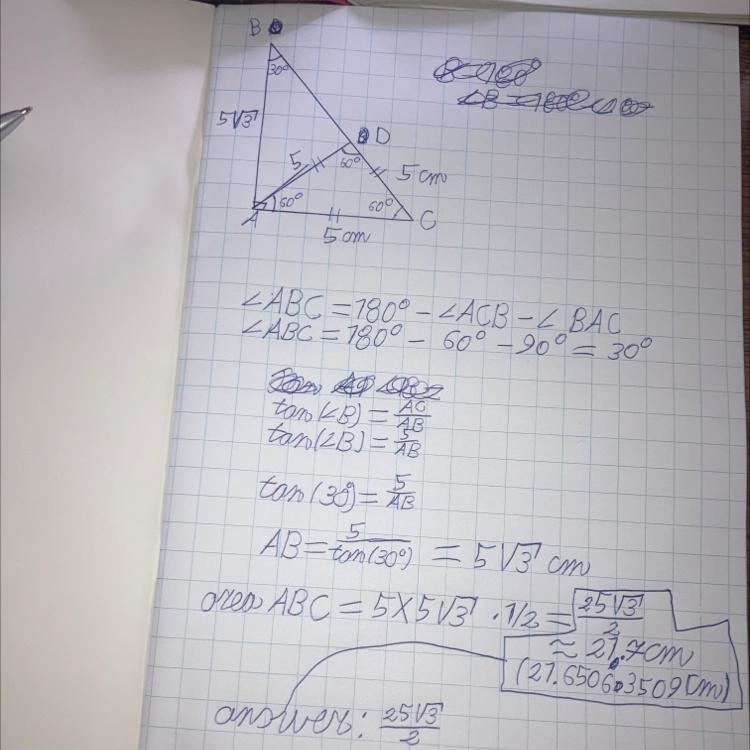 B
30°
5√3
D
5
60°
5 cm
60°
60°
A
C
5 cm
∠ABC = 180° - ∠ACB - ∠BAC
∠ABC = 180° - 60° - 90° = 30°
tan(∠B) = AC/AB
tan(∠B) = 5/AB
tan(30) = 5/AB
AB = 5/tan(30°) = 5√3 cm
area ABC = 5 × 5√3 · 1/2 = 25√3/2
≈ 21.7cm
(21.65063509cm)
answer: 25√3/2